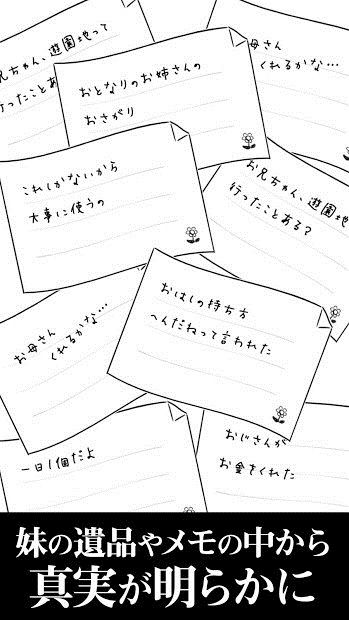 兄ちゃん、遊園地って
行ったことあ
母さん
くれるかな…
おとなりのお姉さんの
おさがり
これしかないから
大事に使うの
お兄ちゃん、遊園地
行ったことある?
おはしの持ち方
へんだねって言われた
お母さん
くれるかな…
一日1個だよ
おじさんが
お金をくれた
妹の遺品やメモの中から
真実が明らかに